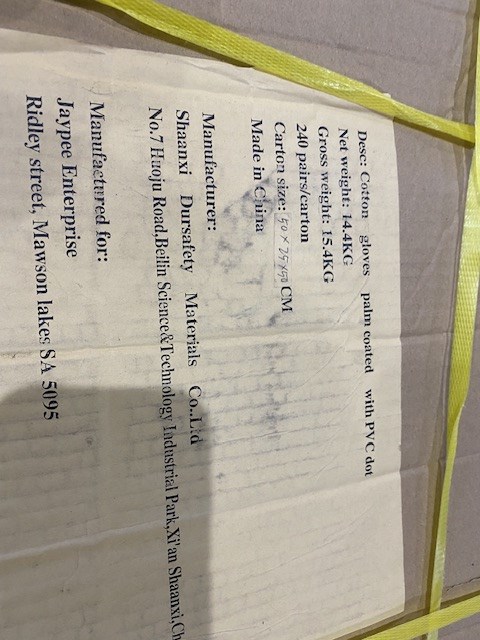 Desc: Cotton gloves palm coated with PVC dot
Net weight: 14.4KG
Gross weight: 15.4KG
240 pairs/carton
Carton size: CM
Made in China
Manufacturer:
Shaanxi Dursafety Materials Co.,Ltd
No.7 Huoju Road,Beilin Science&Technology Industrial Park,Xi'an Shaanxi,Ch
Manufactured for:
Jaypee Enterprise
Ridley street, Mawson lakes SA 5095